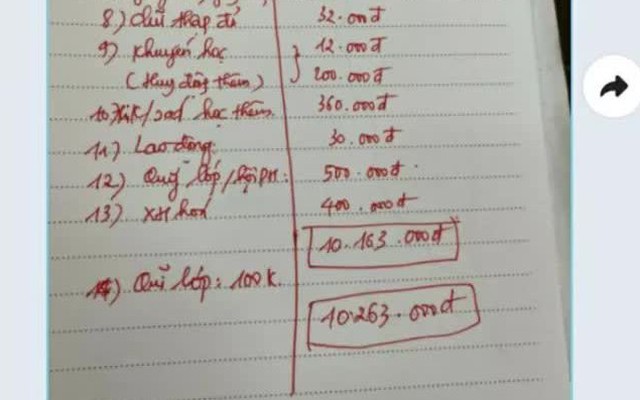 8) Chữ thập đỏ 32.000đ
9) Khuyến học 12.000đ
(Huy động thêm) 200.000đ
học thêm 360.000đ
11) Lao động 30.000đ
12) Quỹ lớp/hội PH: 500.000đ
13) XH hoá 400.000đ
10.163.000đ
14) Quĩ lớp: 100K
10.263.000đ